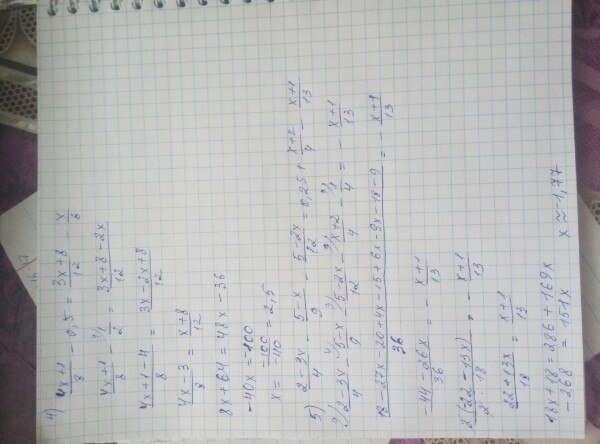 4) (4x+1)/8 - 0,5 = (3x+8)/12 - x/6
(4x+1)/8 - 4/1/2 = (3x+8-2x)/12
(4x+1-4)/8 = (3x-2x+8)/12
(4x-3)/8 = (x+8)/12
8x+64 = 48x-36
-40x = -100
x = -100/-40 = 2,5
5) (2-3x)/4 - (5-x)/9 - (5-2x)/12 = 0,25 + (x+2)/4 - (x+1)/13
9/(2-3x)/4 - 4/(5-x)/9 - 3/(5-2x)/12 - 9/(x+2)/4 - 9/1/4 = - (x+1)/13
(18-27x-20+4x-15+6x-9x-18-9)/36 = - (x+1)/13
(-44-26x)/36 = - (x+1)/13
2(-22-13x)/18 = - (x+1)/13
(22+13x)/18 = (x+1)/13
18x+18 = 286+169x
-268 = 151x x≈-1,77